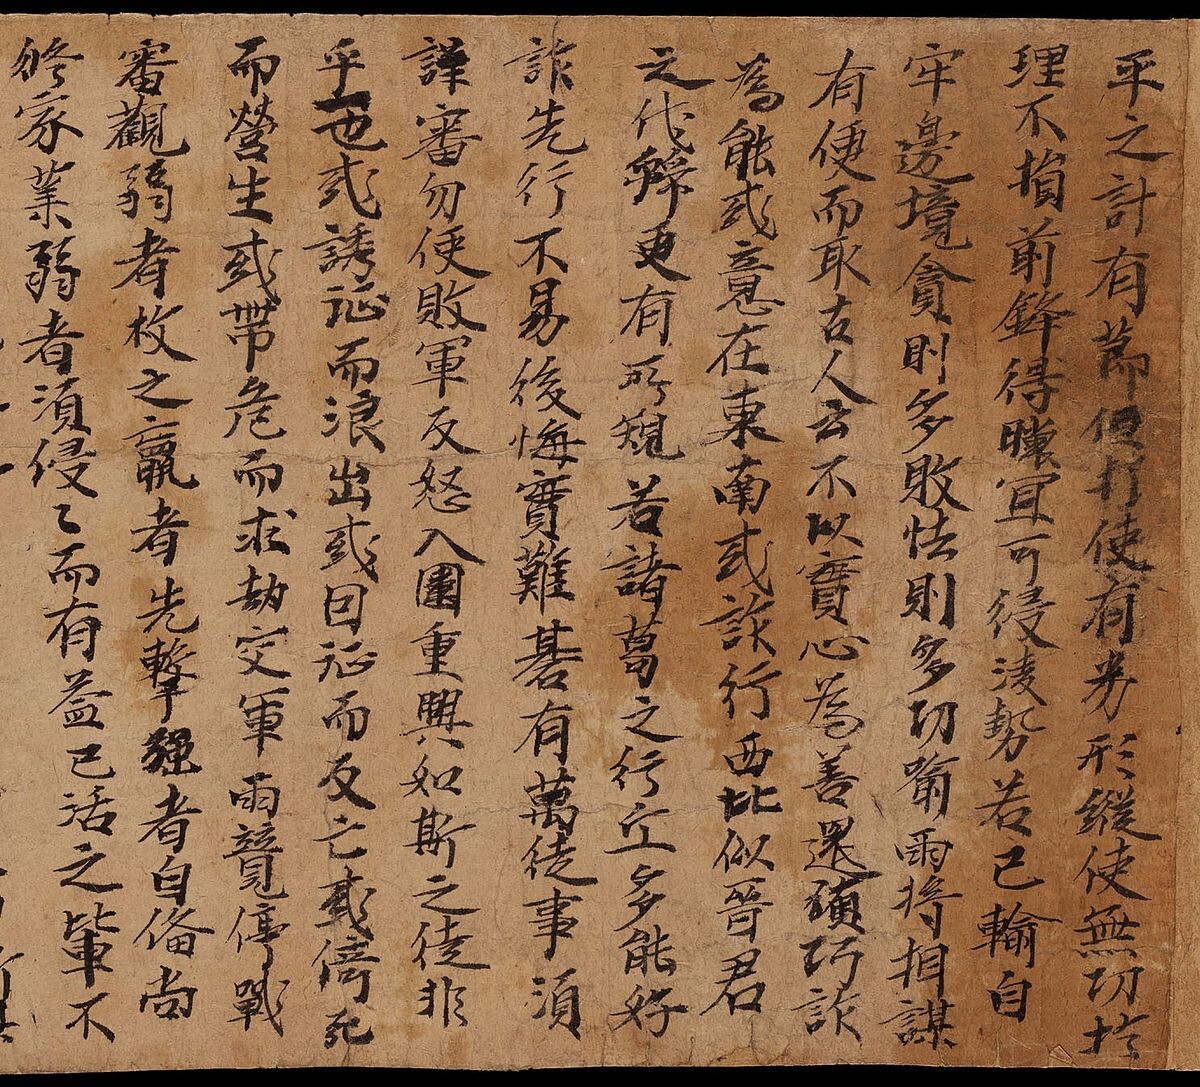 平之計有莭但打使有劵形縱使無功扵
理不損前鋒得曠宜可侵淩勢若已輸自
牢邊境貪則多敗怯則多功喻兩將相謀
有便而取古人云不以實心為善還須巧詐
為能或意在東南或詐行西北似晉君
之伐虢更有所規若諸葛之行丘多能好
詐先行不易後悔實難碁有萬徒事須
謹審勿使敗軍反怒入圍重興如斯之徒非
乎一也或誘征而浪出或因征而反亡或倚死
而營生或帶危而求劫交軍兩競停戰
審觀弱者枚之羸者先擊強者自俻尚
修家業弱者須侵〻而有益已活之輩不